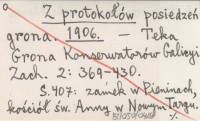 a
Z protokołów posiedzeń
grona. 1906. — Teka
Grona Konserwatorów Galicyi
Zach. 2: 369-430.
S. 407: zamek w Pieninach,
kościół św. Anny w Nowym Targu.